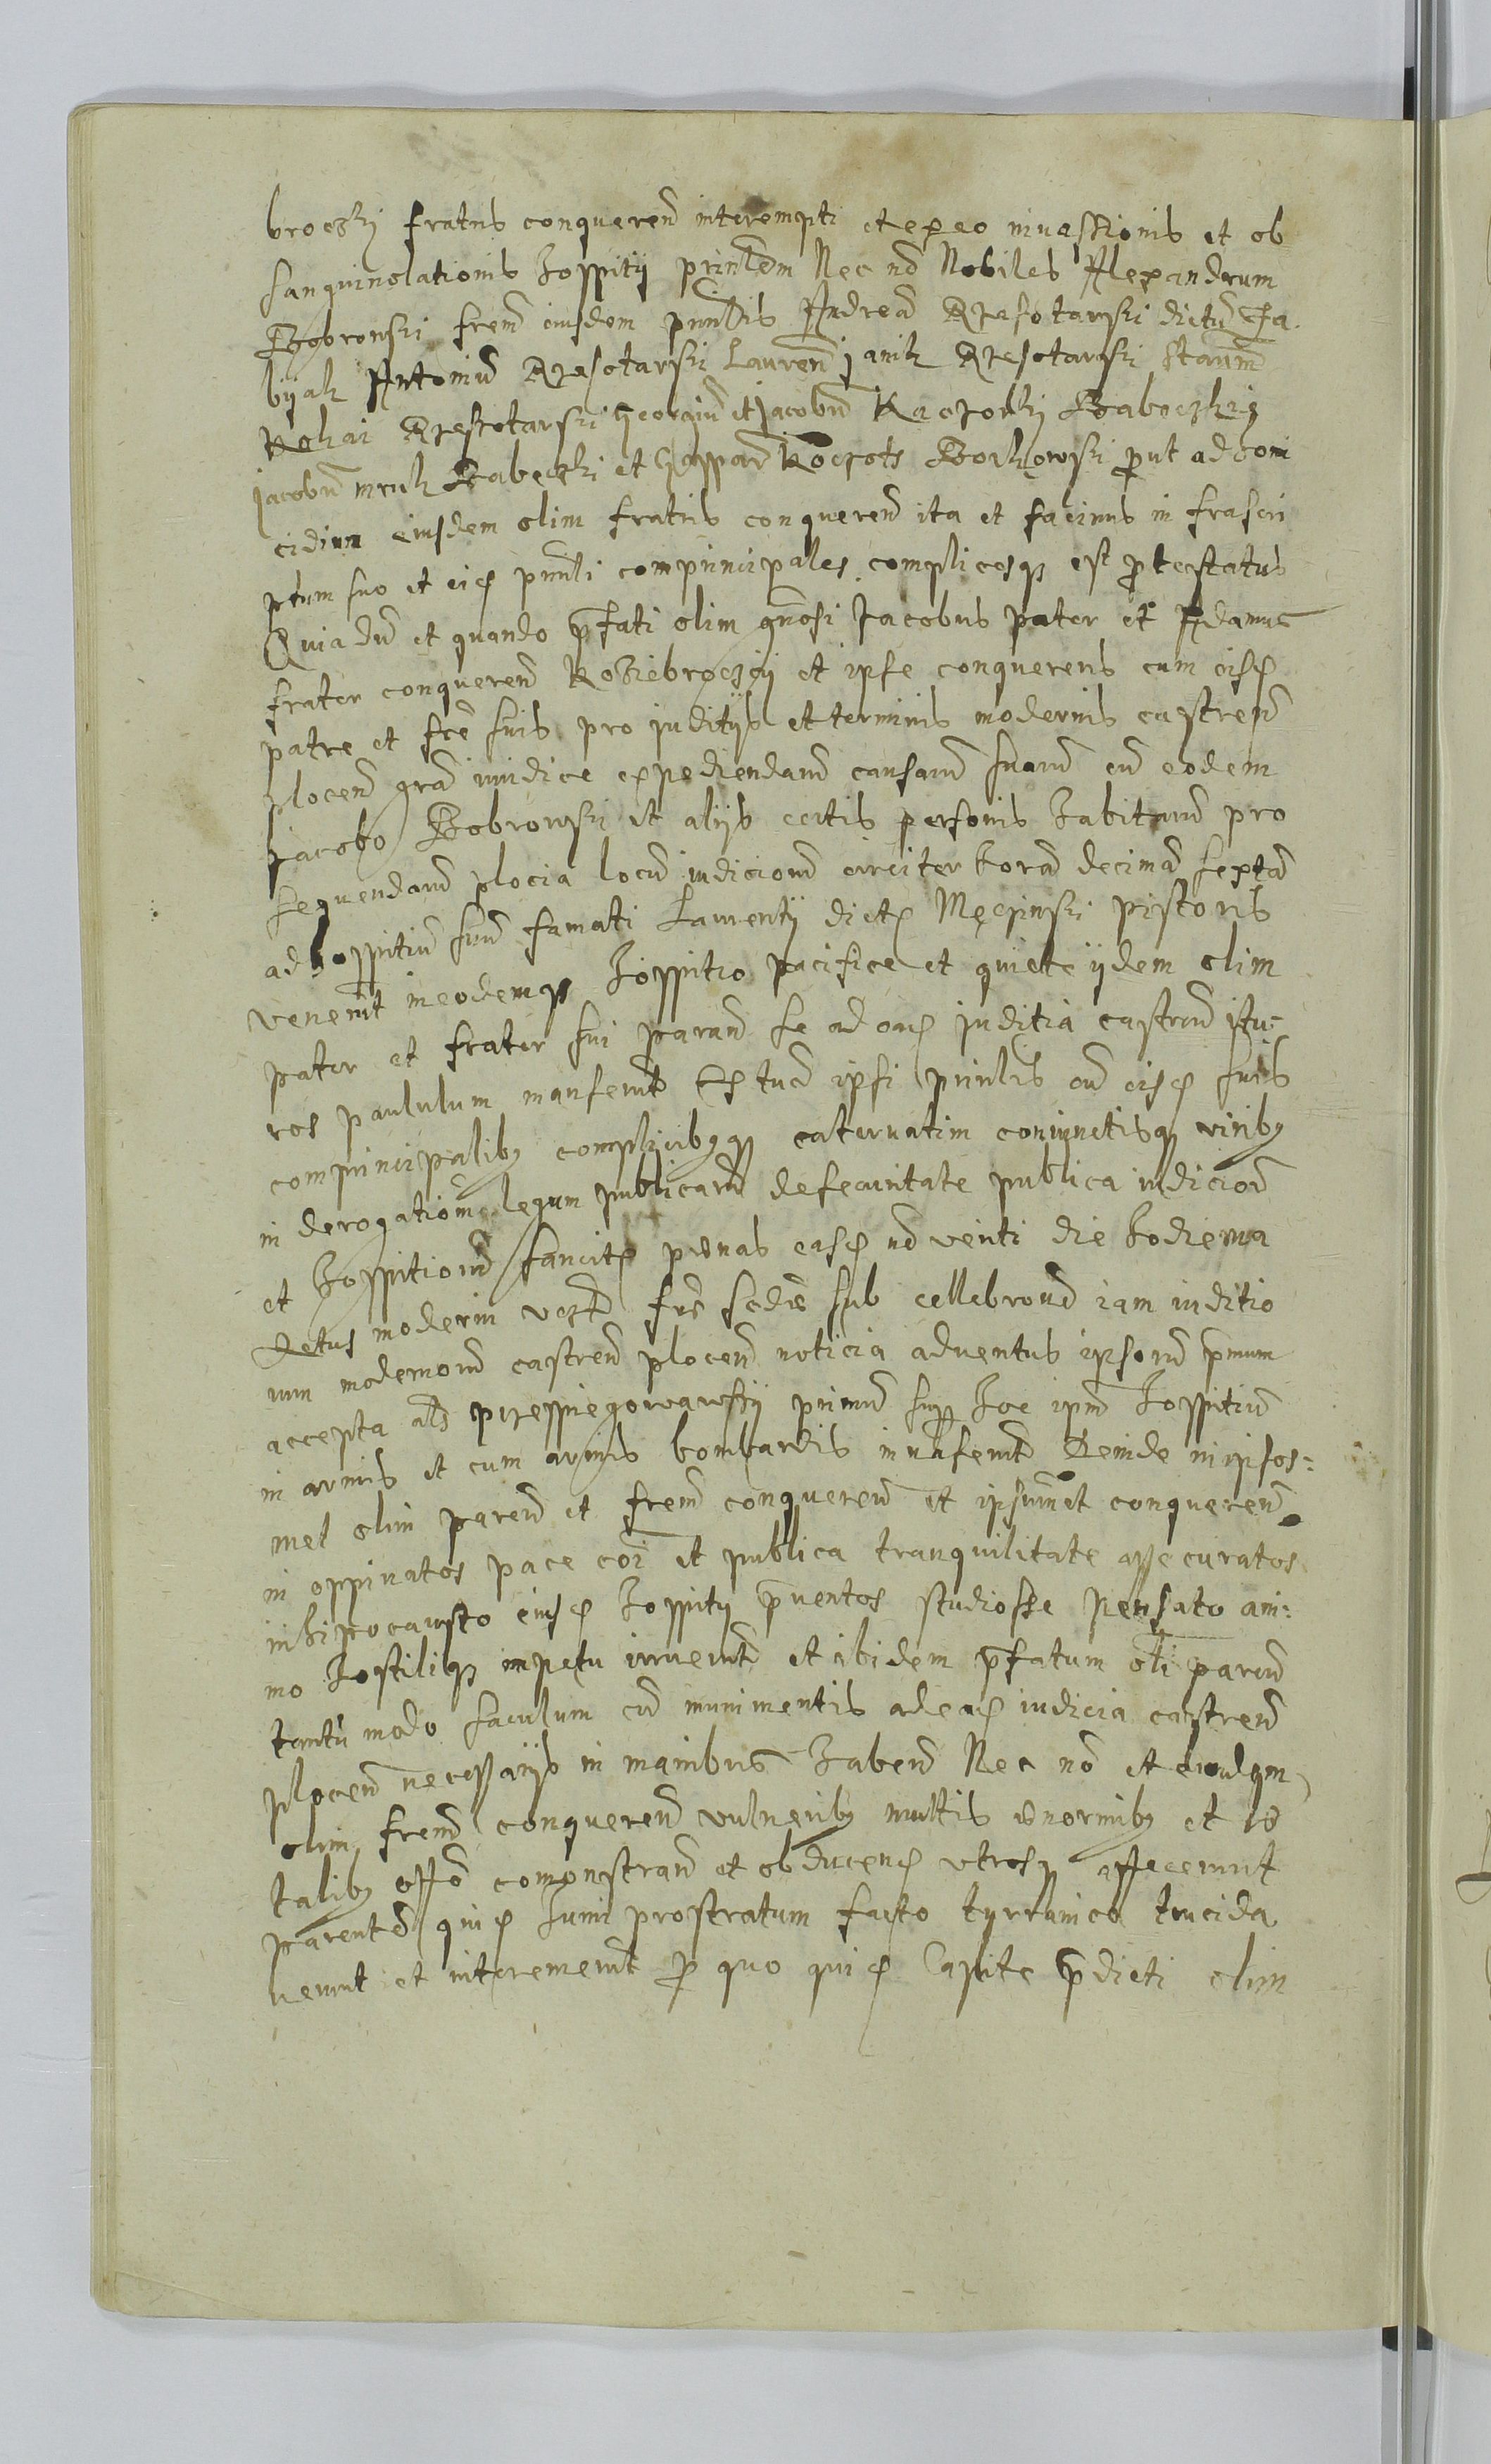 broczki fratris conqueren̄ interempti et ex eo invassionis et ob
sanguinolationis hospitij prin̄lem Nec nō Nobiles Alexandrum
Bobrowski frem̄ eiusdem prin̄lis Andreā Rzesotarski dictū Fa
bijak Antoniū Rzesotarski Lauren̄ Janik Rzesotarski Stan̄m
Kokai Rzesotarski Georgiū et Jacobū Kaczorki Babeczkie
Jacobū mruk Babeczki et Gaspar̄ Borkowski put ad homi
cidium eiusdem olim fratris conqueren̄ ita et facinus infrascri
ptum suo et eiꝫ prin̄li comprincipales complicesqꝫ est ptestatus
Quia dū et quando p̄fati olim gn̄osi Jacobus pater et Adamus
frater conqueren̄ Koziebroczcy et ipse conquerens cum eisꝫ
patre et fr̄e suis pro juditijs et terminis modernis castren̄
plocen̄ gra iuridice expediendam̄ causam̄ suam̄ cū eodem
Jacobo Bobrowski et alijs certis personis habitam̄ pro
sequendam̄ plocia locū iudiciorū circiter horā decimā sextā
ad hospitiū suū famati Laurentij dictꝫ Męczinski pistoris
venerūt in eodemqꝫ hospitio pacifice et quiete ijdem olim
pater et frater sui paran̄ se ad eaꝫ juditia castren̄ itu=
ros paululum manserūt Extūc ipsi prin̄lis cū eisꝫ suis
comprincipalibꝫ complicibꝫqꝫ catervatim coniunctisqꝫ viribꝫ
in derogationē legum publicarū de securitate publica iudiciorū
et hospitiorū sancitꝫ pænas easꝫ nō veriti die hodierna
Actus moderni vesp̄ sub cellebrōne iam iuditio
rum modernorū castren̄ plocen̄ noticia adventus ipsorū p̄mum
accepta al̄s przespiegowawszy primū supꝫ hoc ipm̄ hospitiū
in armis et cum armis bombardis invaserūt Deinde in ipsos=
met olim paren̄ et frem̄ conqueren̄ et ipsum̄et conqueren̄
in oppinatos pace cōi et publica tranquilitate assecuratos
in hipocausto eiusꝫ hospitij p̄ventos studiosse pensato ani=
mo hostiliqꝫ impetu irruerūt et ibidem p̄fatum oli paren̄
tantū modo saculum cū munimentis ad eaꝫ iudicia castren̄
plocen̄ necessarijs in manibus haben̄ Nec nō et
olim frem̄ conqueren̄ vulneribꝫ multis enormibꝫ et le
talibꝫ comonstran̄ et obducenꝫ utrosqꝫ affecerunt
parentē quiꝫ humi prostratum facto tyrranico trucida
verunt et interemerūt p quo quiꝫ Capite p̄dicti olim